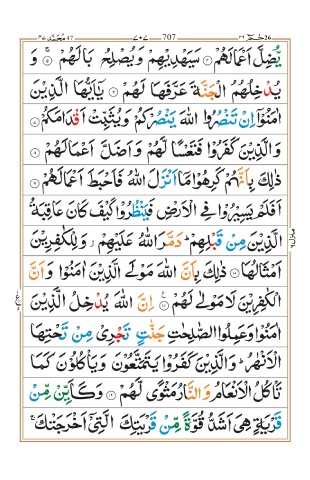 محمد ٤٧ ٧٠٧ 707 حٰمٓ ٢٦
يُّضِلَّ اَعْمَالَهُمْ ۝٤ سَيَهْدِيْهِمْ وَيُصْلِحُ بَالَهُمْ ۝٥ وَ
يُدْخِلُهُمُ الْجَنَّةَ عَرَّفَهَا لَهُمْ ۝٦ يٰۤاَيُّهَا الَّذِيْنَ
اٰمَنُوْۤا اِنْ تَنْصُرُوا اللّٰهَ يَنْصُرْكُمْ وَيُثَبِّتْ اَقْدَامَكُمْ ۝٧
وَالَّذِيْنَ كَفَرُوْا فَتَعْسًا لَّهُمْ وَاَضَلَّ اَعْمَالَهُمْ ۝٨
ذٰلِكَ بِاَنَّهُمْ كَرِهُوْا مَاۤ اَنْزَلَ اللّٰهُ فَاَحْبَطَ اَعْمَالَهُمْ ۝٩
اَفَلَمْ يَسِيْرُوْا فِى الْاَرْضِ فَيَنْظُرُوْا كَيْفَ كَانَ عَاقِبَةُ
الَّذِيْنَ مِنْ قَبْلِهِمْ ؕ دَمَّرَ اللّٰهُ عَلَيْهِمْ ؗ وَلِلْكٰفِرِيْنَ
اَمْثَالُهَا ۝١٠ ذٰلِكَ بِاَنَّ اللّٰهَ مَوْلَى الَّذِيْنَ اٰمَنُوْا وَاَنَّ
الْكٰفِرِيْنَ لَا مَوْلٰى لَهُمْ ۝١١ اِنَّ اللّٰهَ يُدْخِلُ الَّذِيْنَ
اٰمَنُوْا وَعَمِلُوا الصّٰلِحٰتِ جَنّٰتٍ تَجْرِىْ مِنْ تَحْتِهَا
الْاَنْهٰرُ ؕ وَالَّذِيْنَ كَفَرُوْا يَتَمَتَّعُوْنَ وَيَاْكُلُوْنَ كَمَا
تَاْكُلُ الْاَنْعَامُ وَالنَّارُ مَثْوًى لَّهُمْ ۝١٢ وَكَاَيِّنْ مِّنْ
قَرْيَةٍ هِىَ اَشَدُّ قُوَّةً مِّنْ قَرْيَتِكَ الَّتِىْۤ اَخْرَجَتْكَ ۚ